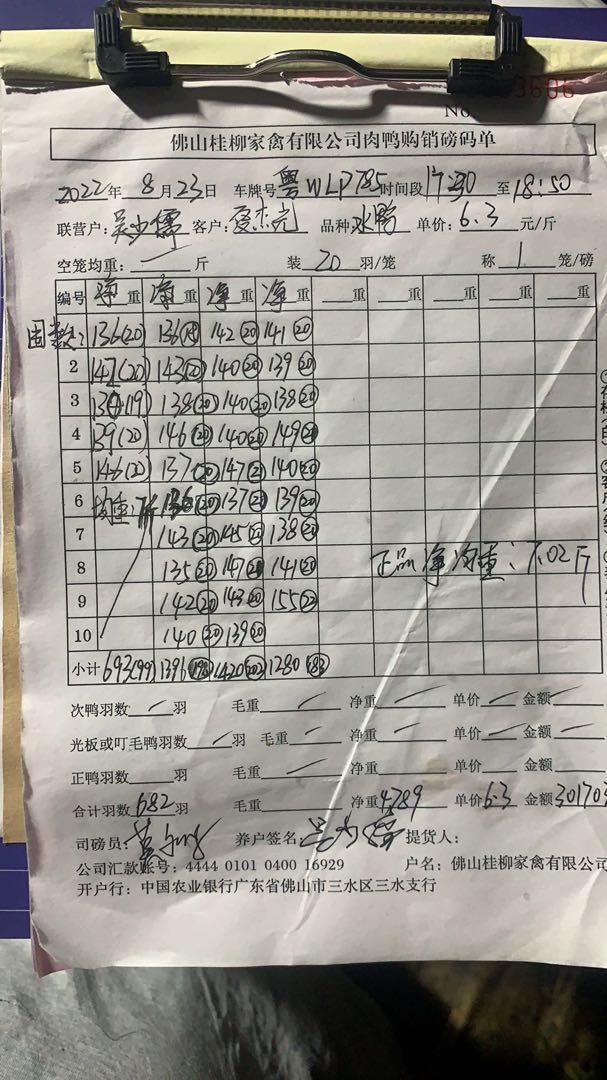 No 3606
佛山桂柳家禽有限公司肉鸭购销磅码单
2022年 8月23日 车牌号 粤WLP785 时间段 17:30 至 18:50
联营户: 吴少儒 客户: 品种 水鸭 单价: 6.3 元/斤
空笼均重: 一 斤 装 20 羽/笼 称 1 笼/磅
编号 净重 净重 净重 净重 重 重 重 重 重
136(20) 136 142(20) 141(20)
2 147(20) 143(20) 140(20) 139(20)
3 (19) 138(20) 140(20) 138(20)
4 139(20) 146(20) 140(20) 149
5 146(20) 137(20) 147 140(20)
6 均重: 136(20) 137 139(20)
7 143(20) 145 138
8 135(20) 147 141(20) 正品净均重: 7.02斤
9 142(20) 143(20) 155(22)
10 140(20) 139(20)
小计 693(99) 1396(198) 1420(202) 1280(183)
次鸭羽数 羽 毛重 净重 单价 金额
光板或叮毛鸭羽数 羽 毛重 净重 单价 金额
正鸭羽数 羽 毛重 净重 单价 金额
合计羽数 682 羽 毛重 净重 4789 单价 6.3 金额 301703
司磅员: 养户签名: 吴少儒 提货人:
公司汇款账号: 4444 0101 0400 16929 户名: 佛山桂柳家禽有限公
开户行: 中国农业银行广东省佛山市三水区三水支行